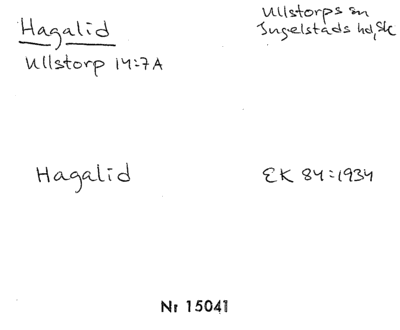 Hagalid
Ullstorp 14:7A
Ullstorps sn
Ingelstads hd, Sk
Hagalid
EK 84:1934
Nr 15041